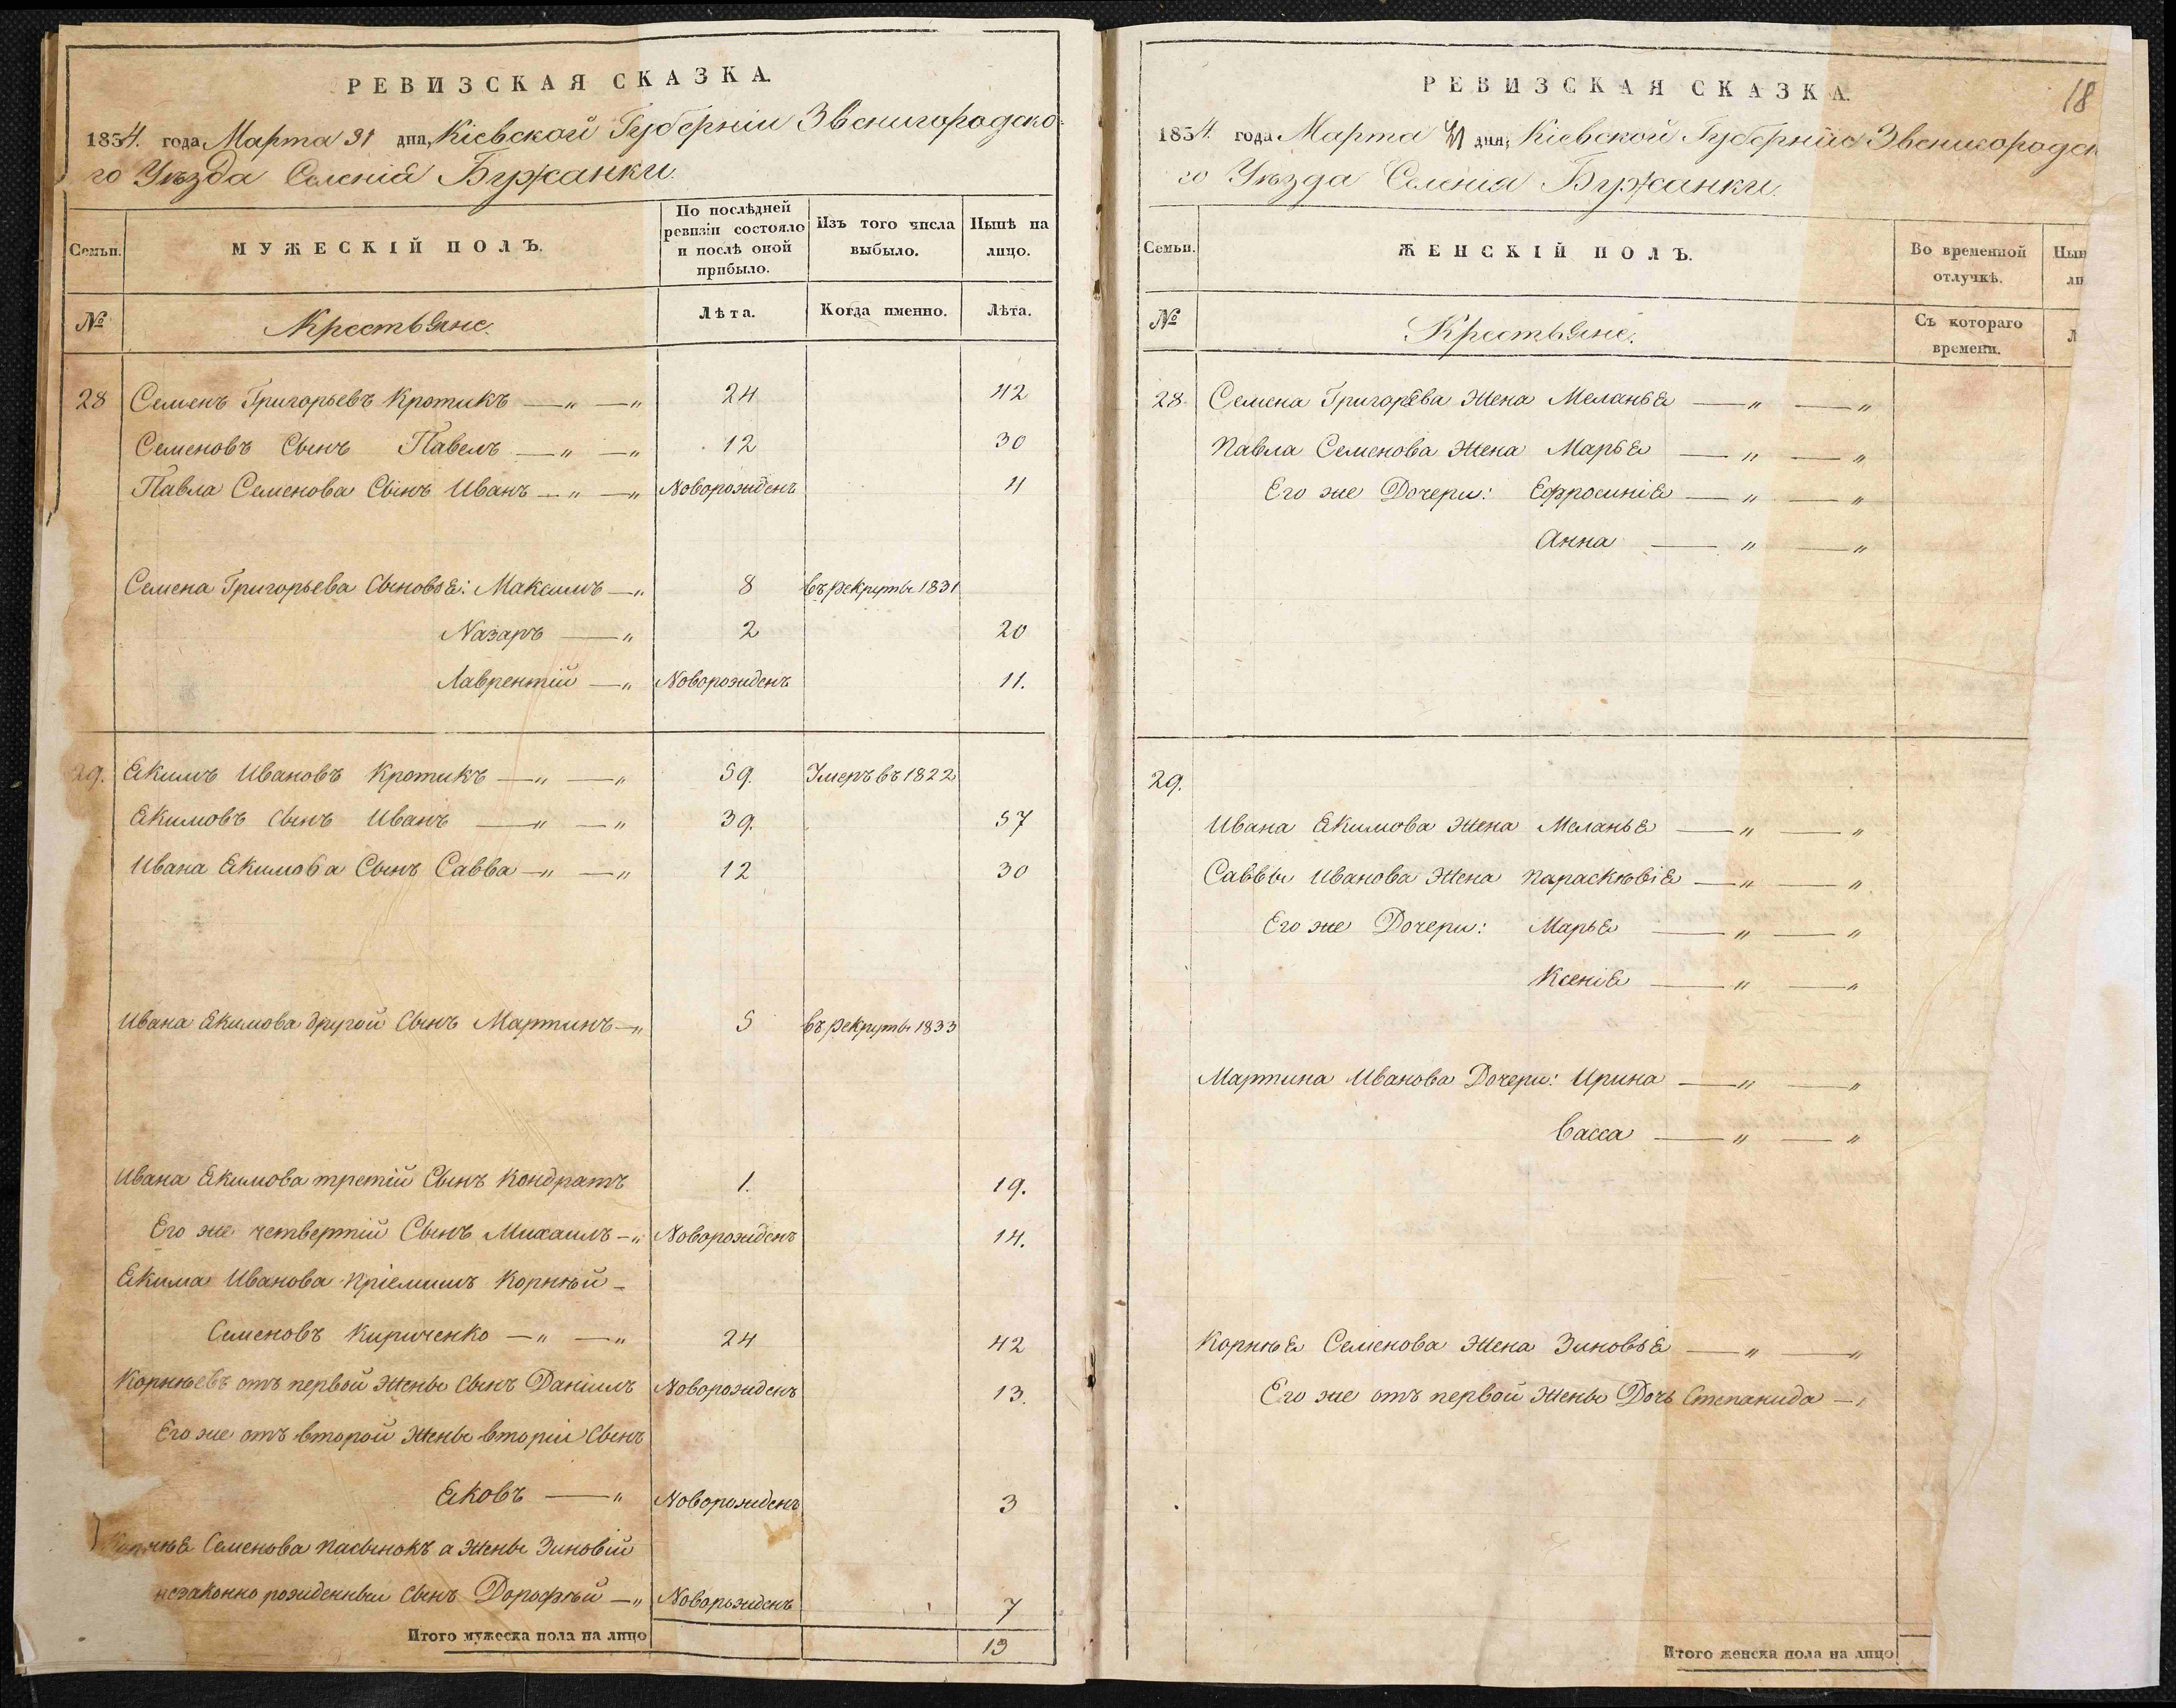 РЕВИЗСКАЯ СКАЗКА.
1834. года Марта 31 дня, Кіевской Губерніи Звенигородско-
го Уѣзда Селенія Бужанки.
Семьи.
МУЖЕСКІЙ ПОЛЪ.
По послѣдней ревизіи состояло и послѣ оной прибыло.
Изъ того числа выбыло.
Нынѣ на лицо.
№
Крестьяне.
Лѣта.
Когда именно.
Лѣта.
28 Семенъ Григорьевъ Кротикъ — „ — „ 24 42
Семеновъ Сынъ Павелъ — „ — „ 12 30
Павла Семенова Сынъ Иванъ — „ — „ Новорожденъ 4
Семена Григорьева Сыновья: Максимъ — „ 8 въ рекруты 1831
Назаръ — „ 2 20
Лаврентій — „ Новорожденъ 11.
29. Якимъ Ивановъ Кротикъ — „ — „ 59. Умеръ въ 1822
Якимовъ Сынъ Иванъ — „ — „ 39. 57
Ивана Якимова Сынъ Савва — „ — „ 12 30
Ивана Якимова другой Сынъ Мартинъ — „ 5 въ рекруты 1833
Ивана Якимова третій Сынъ Кондратъ 1. 19.
Его же четвертій Сынъ Михаилъ — „ Новорожденъ 14.
Якима Иванова пріемишъ Корнѣй —
Семеновъ Кириченко — „ — „ 24 42
Корнѣевъ отъ первой жены Сынъ Даніилъ Новорожденъ 13.
Его же отъ второй жены вторій Сынъ
Яковъ — „ Новорожденъ 3
Корнѣя Семенова пасынокъ а жены Зиновій
незаконно рожденный Сынъ Дорофѣй — „ Новорожденъ 7
Итого мужеска пола на лицо 13
РЕВИЗСКАЯ СКАЗКА.
18
1834. года Марта 31 дня, Кіевской Губерніи Звенигородск
го Уѣзда Селенія Бужанки.
Семьи.
ЖЕНСКІЙ ПОЛЪ.
Во временной отлучкѣ.
Нын
ли
№
Крестьяне.
Съ котораго времени.
Л
28. Семена Григорьева Жена Меланья — „ — „
Павла Семенова Жена Марья — „ — „
Его же Дочери: Ефросинія — „ — „
Анна — „ — „
29.
Ивана Якимова Жена Меланья — „ — „
Саввы Иванова Жена Параскѣвія — „ — „
Его же Дочери: Марья — „ — „
Ксенія — „ — „
Мартина Иванова Дочери: Ирина — „ — „
Васса — „ — „
Корнѣя Семенова Жена Зиновья — „ — „
Его же отъ первой Жены Дочь Степанида — „
Итого женска пола на лицо